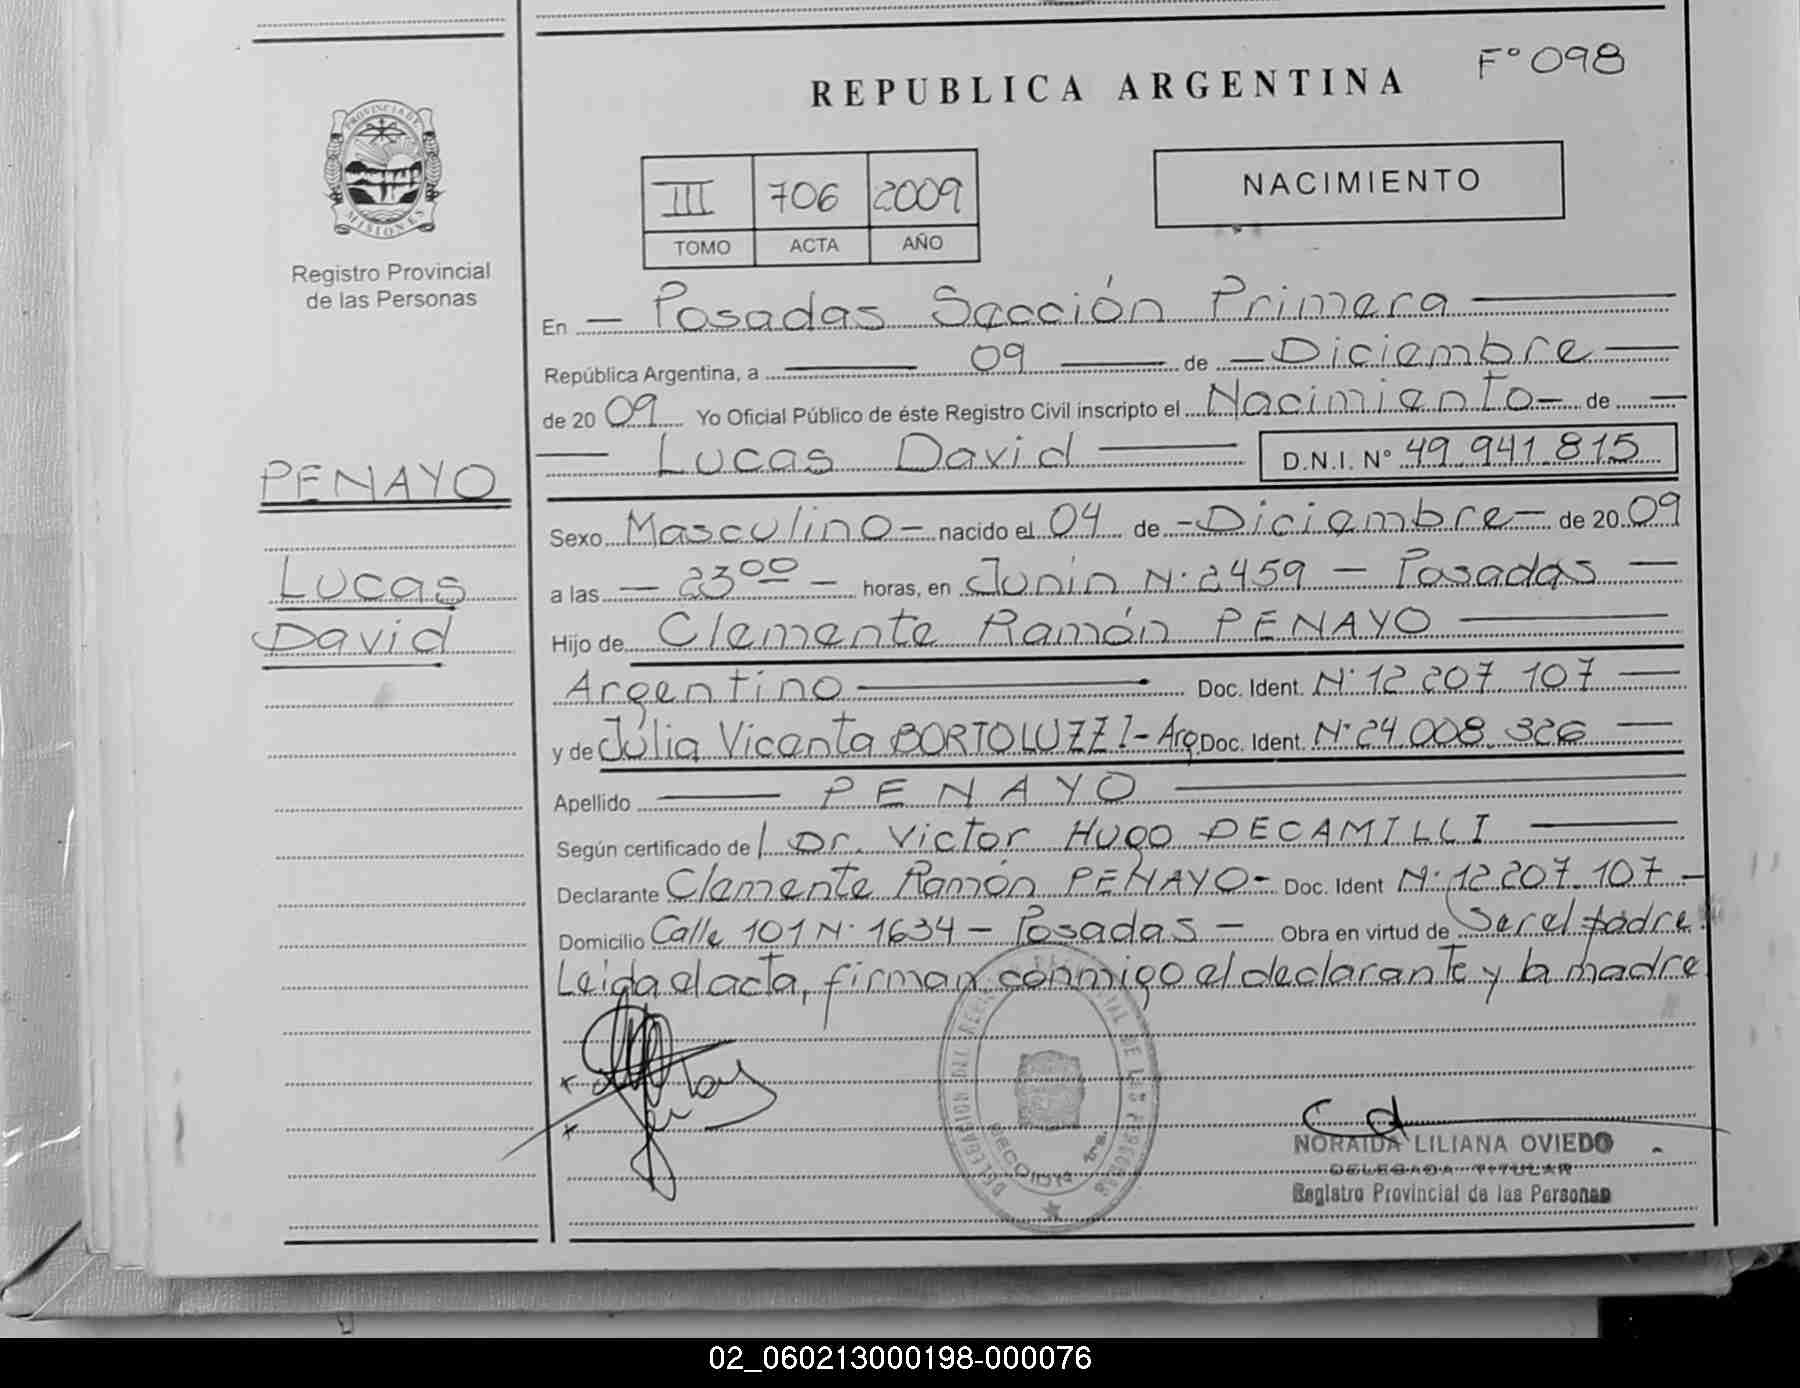 F° 098
REPUBLICA ARGENTINA
PROVINCIA DE
MISIONES
Registro Provincial
de las Personas
III 706 2009
TOMO ACTA AÑO
NACIMIENTO
En - Posadas Sección Primera
República Argentina, a 09 de - Diciembre
de 20 09 Yo Oficial Público de éste Registro Civil inscripto el Nacimiento - de -
Lucas David D.N.I. N° 49.941.815
PENAYO
Lucas
David
Sexo Masculino - nacido el 04 de - Diciembre - de 20 09
a las - 23 00 - horas, en Junín N· 2459 - Posadas -
Hijo de Clemente Ramón PENAYO
Argentino Doc. Ident. N· 12.207.107
y de Julia Vicenta BORTOLUZZI - Arg Doc. Ident. N· 24.008.326
Apellido PENAYO
Según certificado de l Dr. Victor Hugo DECAMILLI
Declarante Clemente Ramón PENAYO - Doc. Ident N· 12.207.107 -
Domicilio Calle 101 N· 1634 - Posadas - Obra en virtud de Ser el padre.
Leida el acta, firman conmigo el declarante y la madre.
DELEGACION DEL REGISTRO PROVINCIAL DE LAS PERSONAS
NORAIDA LILIANA OVIEDO
DELEGADA TITULAR
Registro Provincial de las Personas
02_060213000198-000076